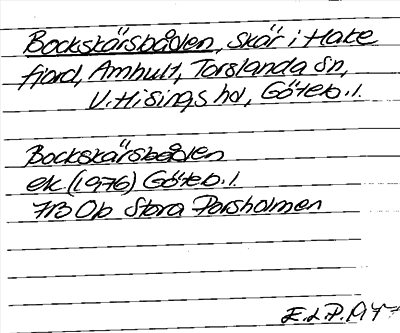 Bockskärsbåden, skär i Hake
fjord, Amhult, Torslanda sn,
V. Hisings hd, Göteb. l.
Bockskärsbåden
ek (1976) Göteb. l.
7B 0b Stora Porsholmen